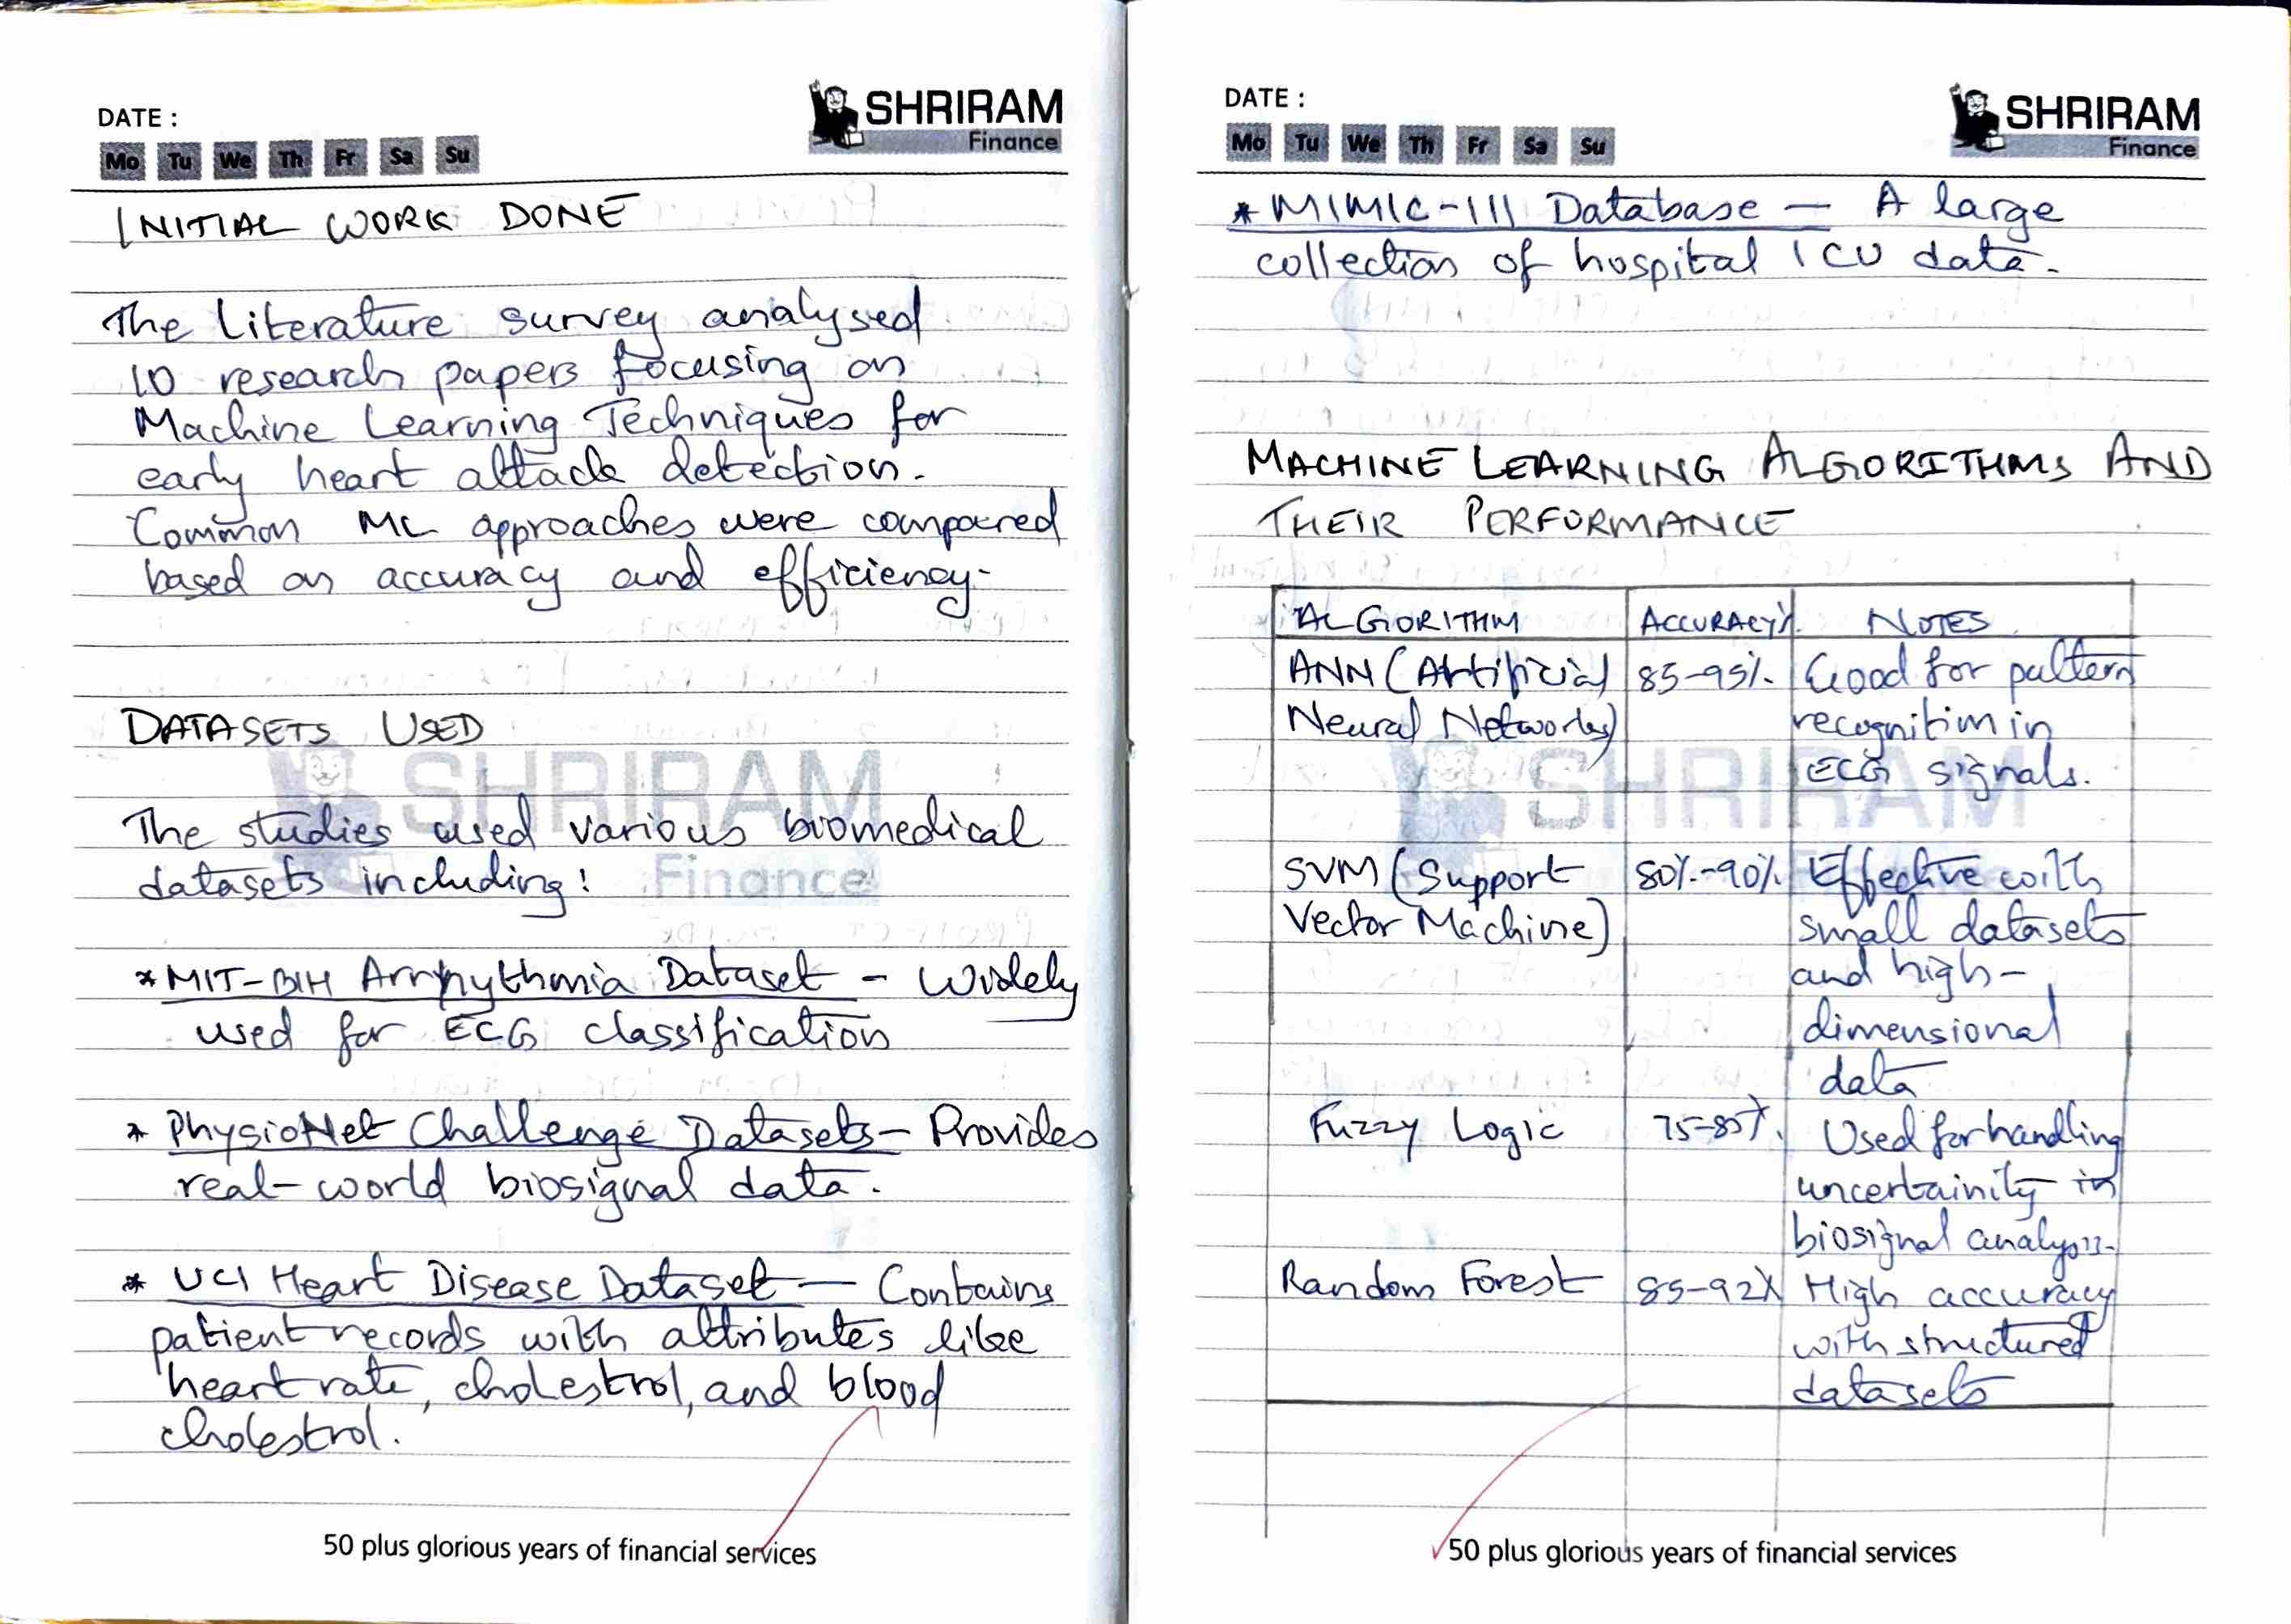 DATE :
SHRIRAM
Finance
Mo Tu We Th Fr Sa Su
INITIAL WORK DONE
The Literature survey analysed
10 research papers focusing on
Machine Learning Techniques for
early heart attack detection.
Common ML approaches were compared
based on accuracy and efficiency.
DATASETS USED
SHRIRAM
Finance
The studies used various biomedical
datasets including:
*MIT-BIH Arrhythmia Dataset - Widely
used for ECG classification
* PhysioNet Challenge Datasets - Provides
real-world biosignal data.
* UCI Heart Disease Dataset — Contains
patient records with attributes like
heart rate, cholestrol, and blood
cholestrol.
50 plus glorious years of financial services
DATE :
SHRIRAM
Finance
Mo Tu We Th Fr Sa Su
* MIMIC-III Database — A large
collection of hospital ICU data.
MACHINE LEARNING ALGORITHMS AND
THEIR PERFORMANCE
ALGORITHM ACCURACY% NOTES
ANN (Artificial 85-95% Good for pattern
Neural Networks) recognition in
ECG signals.
SHRIRAM
SVM (Support 80%-90% Effective with
Vector Machine) small datasets
and high-
dimensional
data
Fuzzy Logic 75-85% Used for handling
uncertainity in
biosignal analysis.
Random Forest 85-92% High accuracy
with structured
datasets
50 plus glorious years of financial services